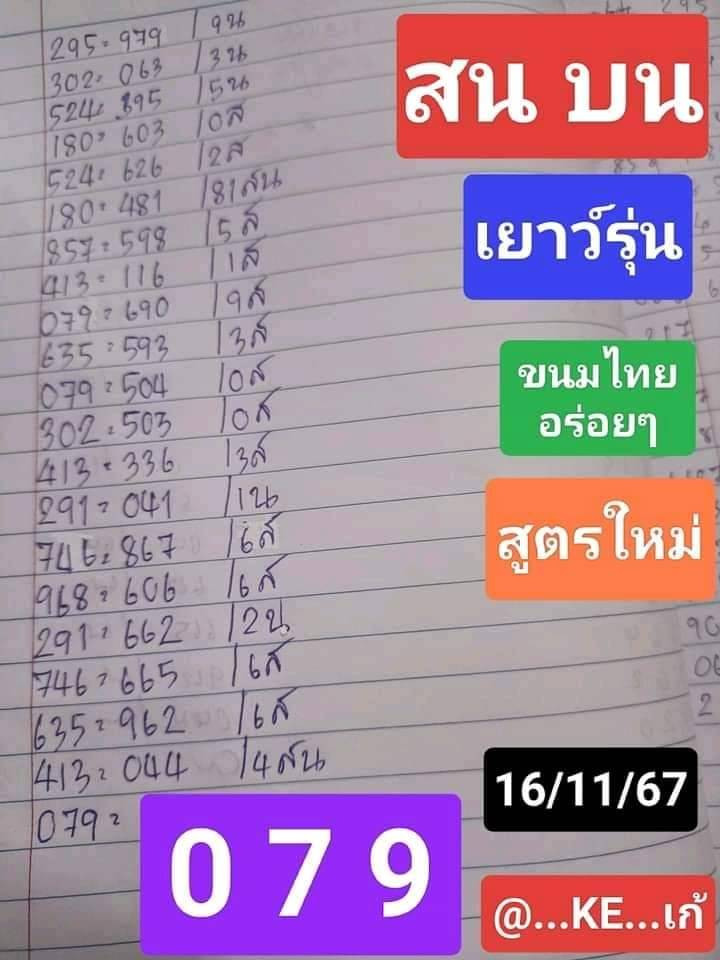 295=979 / 9น
302=063 / 3น
524=395 / 5น
180=603 / 0ส
524=626 / 2ส
180=481 / 81สน
857=598 / 5ส
413=116 / 1ส
079=690 / 9ส
635=593 / 3ส
079=504 / 0ส
302=503 / 0ส
413=336 / 3ส
291=041 / 1น
746=867 / 6ส
968=606 / 6ส
291=662 / 2น
746=665 / 6ส
635=962 / 6ส
413=044 / 4สน
079=
0 7 9
สน บน
เยาว์รุ่น
ขนมไทย
อร่อยๆ
สูตรใหม่
16/11/67
@...KE...เก้